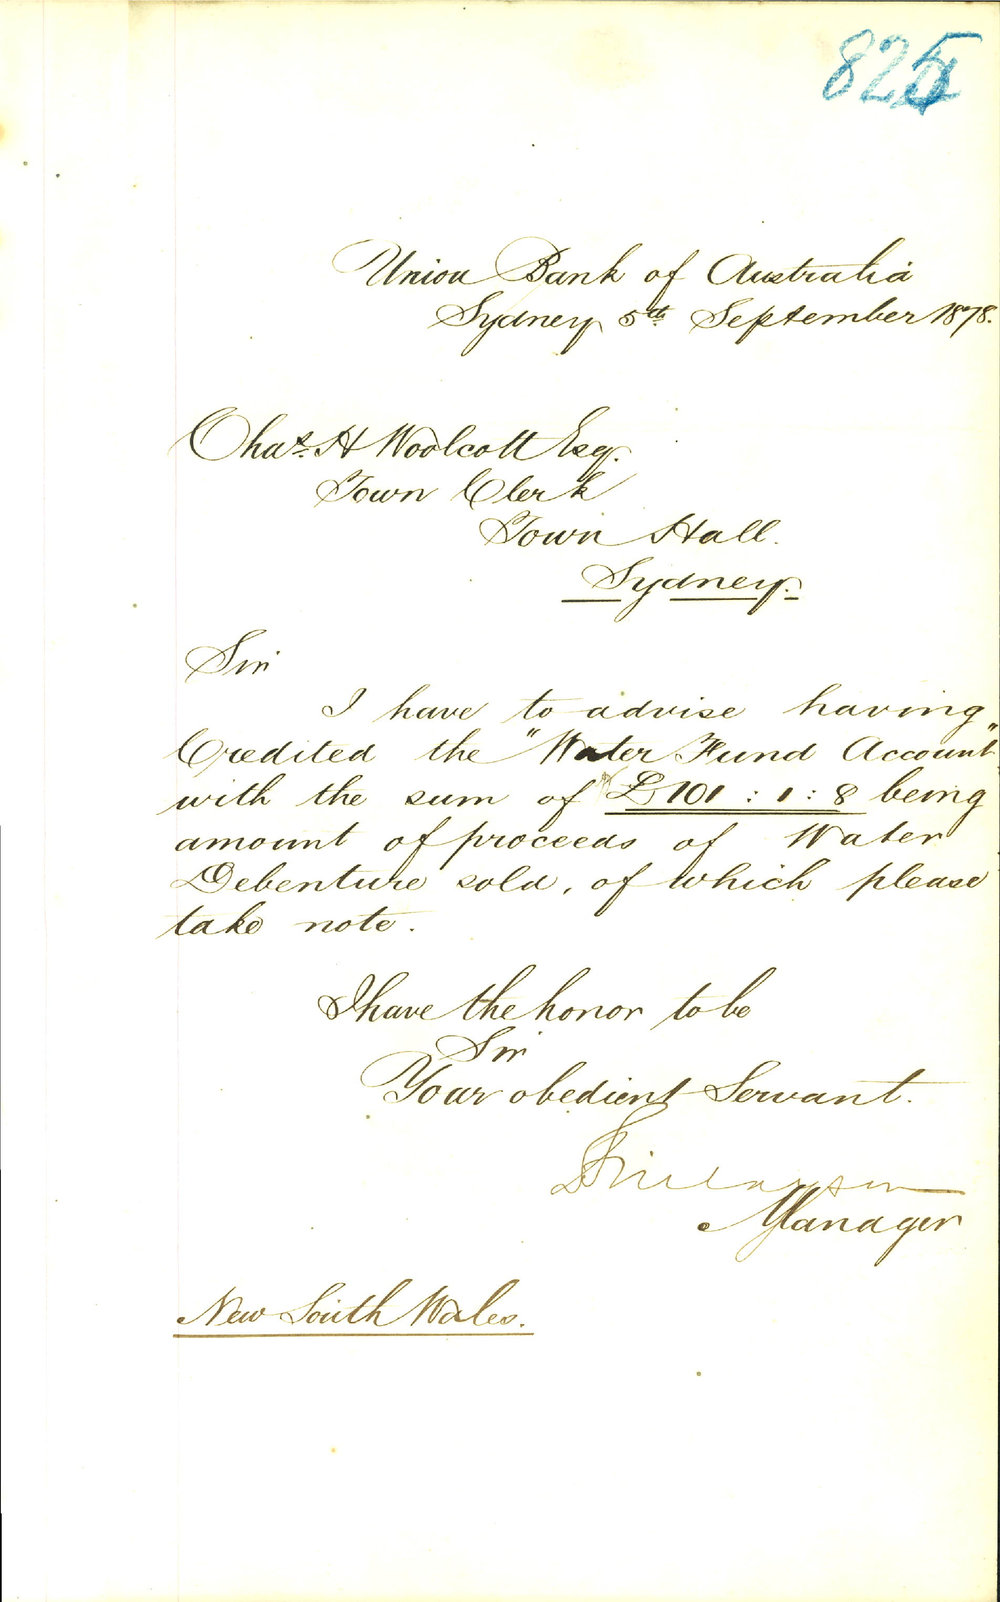 825
Union Bank of Australia
Sydney 5th September 1878.
Chas. H Woolcott Esq.
Town Clerk
Town Hall.
Sydney.
Sir
I have to advise having
Credited the "Water Fund Account"
with the sum of £101 : 1 : 8 being
amount of proceeds of Water
Debenture sold, of which please
take note.
I have the honor to be
Sir
Your obedient Servant.
Manager
New South Wales.